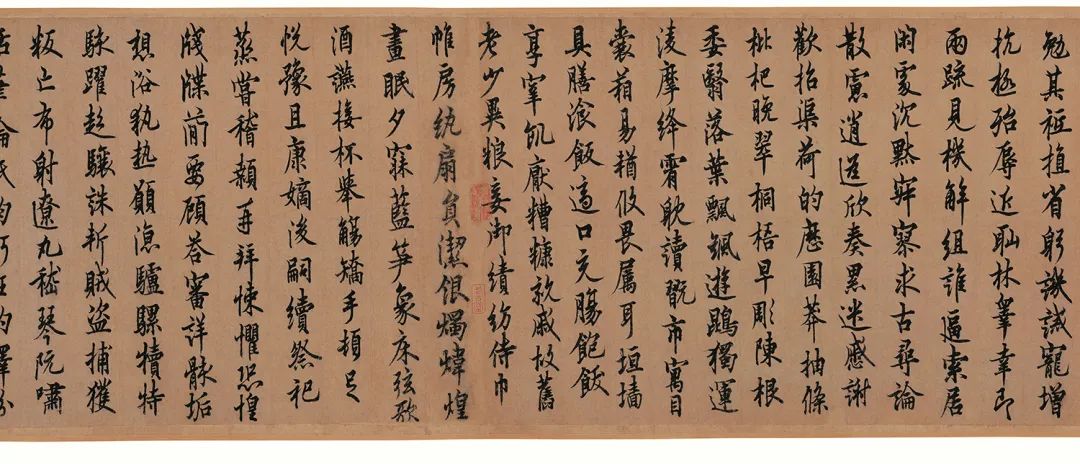 勉其祗植省躬譏誡寵增
抗極殆辱近恥林皋幸即
兩疏見機解組誰逼索居
閑處沉默寂寥求古尋論
散慮逍遙欣奏累遣慼謝
歡招渠荷的歷園莽抽條
枇杷晚翠桐梧早彫陳根
委翳落葉飄颻遊鵾獨運
凌摩絳霄耽讀翫市寓目
囊箱易輶攸畏屬耳垣牆
具膳飡飯適口充腸飽飫
享宰飢厭糟糠親戚故舊
老少異糧妾御績紡侍巾
帷房紈扇員潔銀燭煒煌
晝眠夕寐藍笋象床弦歌
酒讌接杯舉觴矯手頓足
悅豫且康嫡後嗣續祭祀
蒸嘗稽顙再拜悚懼恐惶
牋牒簡要顧答審詳骸垢
想浴執熱願涼驢騾犢特
駭躍超驤誅斬賊盜捕獲
叛亡布射遼丸嵇琴阮嘯
恬筆倫紙鈞巧任釣釋紛